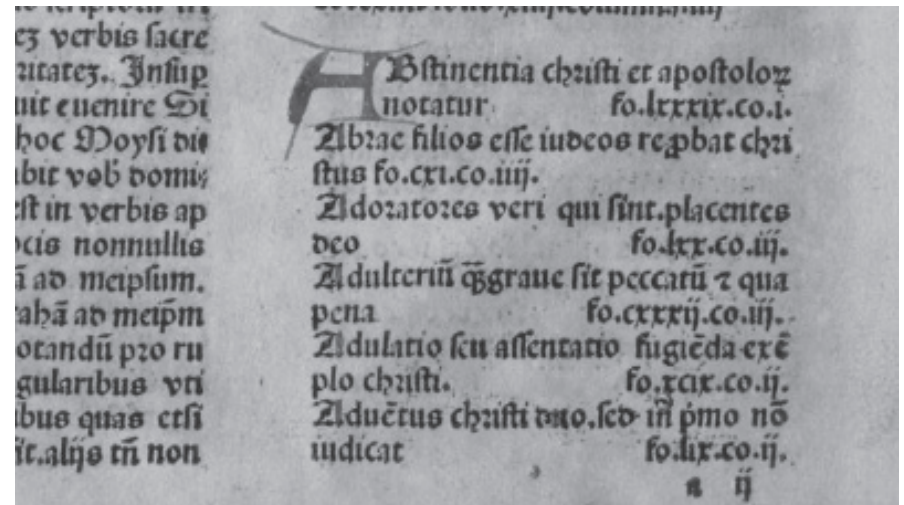 eʒ verbis sacre
ritateʒ. Insuꝑ
uit euenire Si
hoc Moysi
vob̃ domi⸗
est in verbis ap
ocis nonnullis
ã ad meipsum.
rahã ad meip̃m
otandũ pro ru
gularibus vti
ibus quas etsi
it.alijs tñ non
ABstinentia christi et apostoloꝝ
notatur fo.lxxxix.co.i.
Abrae filios esse iudeos reꝓbat chri
stus fo.cxi.co.iiij.
Adoratores veri qui sint.placentes
deo fo.lxx.co.iij.
Adulteriũ q̃ꝫgraue sit peccatũ ⁊ qua
pena fo.cxxxij.co.iij.
Adulatio seu assentatio fugiẽda exẽ
plo christi. fo.xcix.co.ij.
Aduẽtus christi duo.sed iñ p̃mo nõ
iudicat fo.lix.co.ij.
a ij